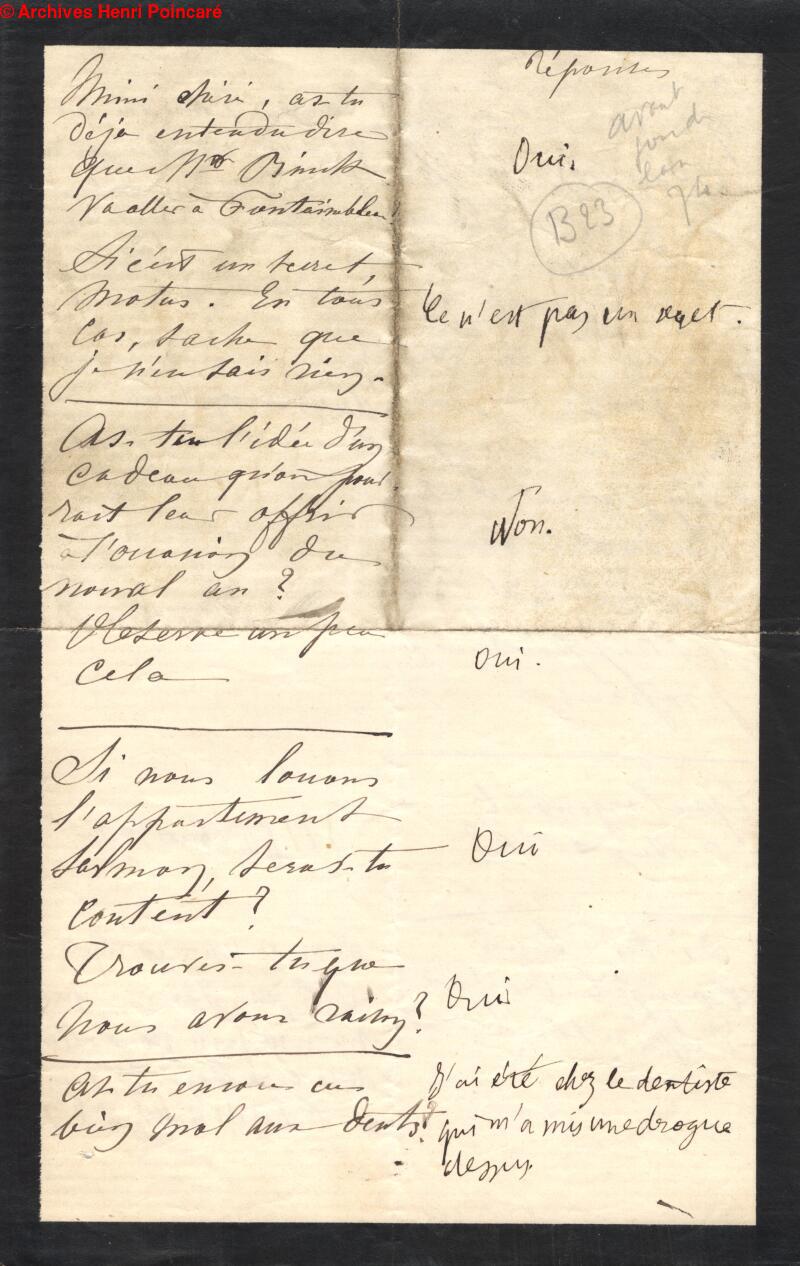 © Archives Henri Poincaré
Réponses
Mimi chéri, as-tu
déjà entendu dire
que Mr Rinck
va aller à Fontainebleau?
Oui.
avant
B23
Si c'est un secret,
motus. En tous
cas, sache que
je n'en sais rien.
Ce n'est pas un secret.
As-tu l'idée d'un
cadeau qu'on pour-
rait leur offrir
à l'occasion du
nouvel an?
Non.
Réserve un peu
cela
oui.
Si nous louons
l'appartement
Salmon, seras-tu
content?
Oui
Trouves-tu que
nous avons raison?
Oui
As-tu encore eu
bien mal aux dents?
J'ai été chez le dentiste
qui m'a mis une drogue
dessus.